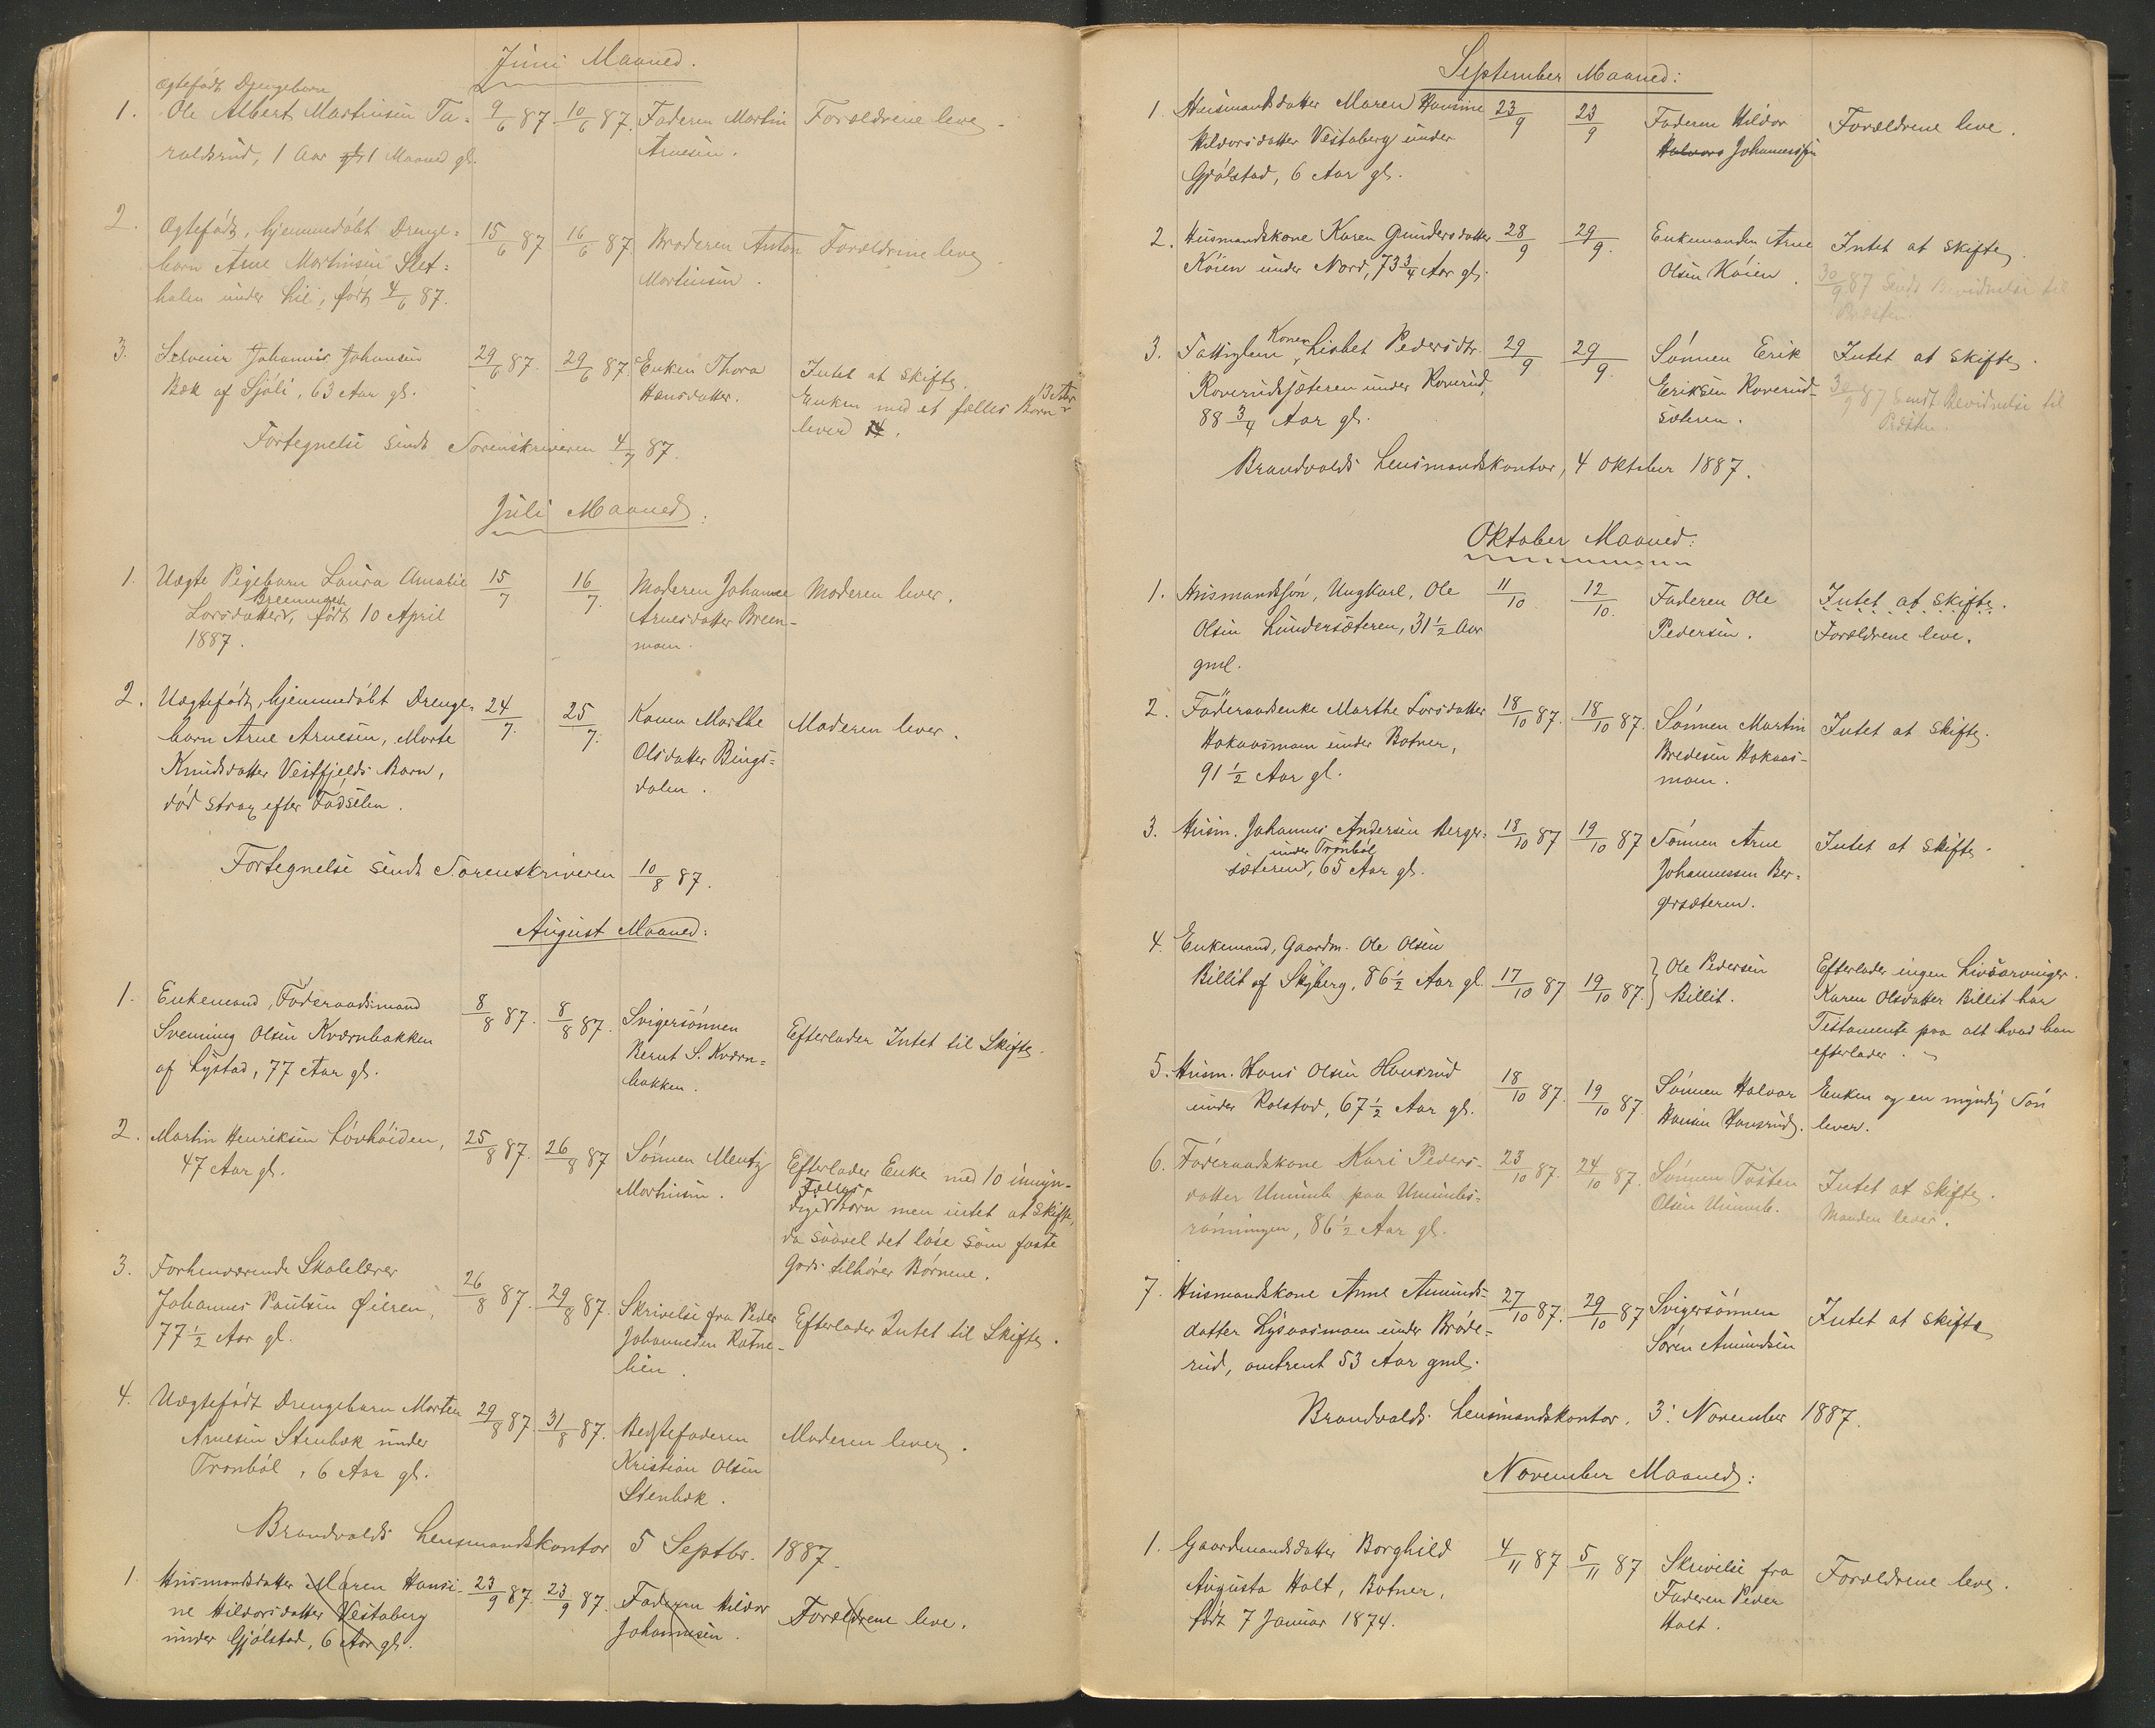 Juni Maaned.
Ægtefødt Drengebarn
1. Ole Albert Martinsen Ta- 9/6 87 10/6 87. Faderen Martin Forældrene leve.
raldsrud, 1 Aar 1 Maaned gl. Arnesen.
2. Ægtefødt, hjemmedøbt Drenge- 15/6 87 16/6 87. Broderen Anton Forældrene leve.
barn Arne Martinsen Slet- Martinsen.
halen under Lie, født 4/6 87.
3. Selveier Johannes Johansen 29/6 87. 29/6 87. Enken Thora Intet at skifte.
Bæk af Sjøli, 63 Aar gl. Hansdatter. Enken med et fælles Barn 13 Aar
lever.
Fortegnelse sendt Sorenskriveren 4/7 87.
Juli Maaned.
1. Uægte Pigebarn Laura Amalie 15/7 16/7. Moderen Johanne Moderen lever.
Larsdatter Breenmoen, født 10 April Arnesdatter Breen-
1887. moen.
2. Uægtefødt, hjemmedøbt Drenge- 24/7. 25/7. Konen Marthe Moderen lever.
barn Arne Arnesen, Marte Olsdatter Bings-
Knudsdatter Vestfjelds Barn, dalen.
død strax efter Fødselen.
Fortegnelse sendt Sorenskriveren 10/8 87.
August Maaned:
1. Enkemand, Føderaadsmand 8/8 87. 8/8 87. Svigersønnen Efterlader Intet til Skifte.
Svenning Olsen Kværnbakken Bernt S. Kværn-
af Lystad, 77 Aar gl. bakken.
2. Martin Henriksen Løvhöiden, 25/8 87. 26/8 87 Sønnen Mentz Efterlader Enke med 10 umyn-
47 Aar gl. Martinsen. dige Fælles Børn men intet at skifte,
da saavel det løse som faste
Gods tilhører Børnene.
3. Forhenværende Skolelærer 26/8 87. 29/8 87. Skrivelse fra Peder Efterlader Intet til Skifte.
Johannes Paulsen Øieren, Johannesen Rotne-
77 1/2 Aar gl. lien.
4. Uægtefødt Drengebarn Morten 29/8 87 31/8 87. Bedstefaderen Moderen lever.
Arnesen Stenbæk under Kristian Olsen
Tronbøl, 6 Aar gl. Stenbæk.
Brandvolds Lensmandskontor 5 Septbr. 1887.
1. Husmandsdatter Maren Hansi- 23/9 87. 23/9 87. Faderen Hildor Forældrene leve.
ne Hildorsdatter Vestaberg Johannesen.
under Gjølstad, 6 Aar gl.
September Maaned:
1. Husmandsdatter Maren Hansine 23/9 23/9 Faderen Hildor Forældrene leve.
Hildorsdatter Vestaberg under Halvors Johannessen
Gjølstad, 6 Aar gl.
2. Husmandskone Karen Gundersdatter 28/9 29/9. Enkemanden Arne Intet at skifte.
Køien under Nord, 73 3/4 Aar gl. Olsen Køien. 30/9 87 Sendt Bevidnelse til
Præsten.
3. Fattiglem Konen Lisbet Pedersdtr. 29/9 29/9. Sønnen Erik Intet at skifte.
Roverudsjæteren under Roverud, Eriksen Roverud- 30/9 87 Sendt Bevidnelse til
88 3/4 Aar gl. sæteren. Præsten.
Brandvolds Lensmandskontor, 4 Oktober 1887.
Oktober Maaned:
1. Husmandssøn, Ungkarl, Ole 11/10. 12/10. Faderen Ole Intet at skifte.
Olsen Lundersæteren, 31 1/2 Aar Pedersen. Forældrene leve.
gml.
2. Føderaadsenke Marthe Larsdatter 18/10 87. 18/10 87. Sønnen Martin Intet at skifte.
Hokaasmoen under Botner, Bredesen Hokaas-
91 1/2 Aar gl. moen.
3. Husm. Johannes Andersen Berger- 18/10 87 19/10 87 Sønnen Arne Intet at skifte.
sæteren under Tronbøl, 65 Aar gl. Johannessen Ber-
gersæteren.
4. Enkemand, Gaardm. Ole Olsen Ole Pedersen Efterlader ingen Livsarvinger.
Billit af Skyberg, 86 1/2 Aar gl. 17/10 87 19/10 87. Billit. Karen Olsdatter Billit har
Testamente paa alt hvad han
efterlader.
5. Husm. Hans Olsen Hansrud 18/10 87. 19/10 87. Sønnen Halvor Enken og en myndig Søn
under Rolstad, 67 1/2 Aar gl. Hansen Hansrud. lever.
6. Føderaadskone Kari Peders- 23/10 87. 24/10 87. Sønnen Tosten Intet at skifte.
datter Ummb paa Ummbs- Olsen Ummb. Manden lever.
rønningen, 86 1/2 Aar gl.
7. Husmandskone Anne Amunds- 27/10 87. 29/10 87 Svigersønnen Intet at skifte
datter Lysaasmoen under Brøde- Søren Amundsen
rud, omtrent 53 Aar gml.
Brandvolds Lensmandskontor. 3. November 1887.
November Maaned:
1. Gaardmandsdatter Borghild 4/11 87 5/11 87 Skrivelse fra Forældrene leve.
Augusta Holt, Botner, Faderen Peder
født 7 Januar 1874. Holt.